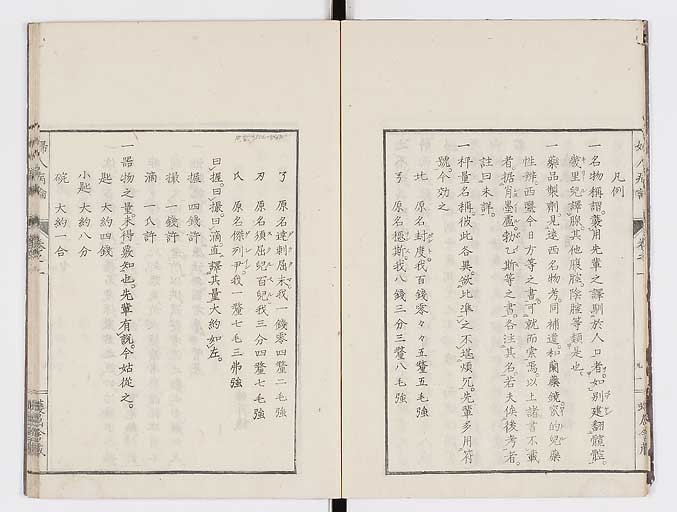 凡例
一名物稱謂襲用先輩之譯馴於人口者如別建翻髖髖
歲里兒譯腺其他腹腔陰腔等類是也
一藥品製劑見遠西名物考同補遺和蘭藥鏡家的兒藥
性辨西醫今日方等之書可就而索焉以上諸書不載
者據肯墨盧勃乙斯等之書各注其名若夫俟後考者
註曰未詳
一秤量名稱彼此各異欲此準之不堪煩冗先輩多用符
號今効之
原名封度我百錢零々五釐五毛強
原名 我八錢三分三釐八毛強
原名達剌屈末我一錢零四釐二毛強
刃 原名須屈兒百兒我三分四釐七毛強
原名傑列乎我一釐七毛三弗強
曰握曰撮曰滴直譯其量大約如左
握 四錢許
撮 一錢許
滴 一氏許
匙 大約四錢
小匙 大約八分
碗 大約一合
一器物之量未得嚴知也先輩有說今姑從之